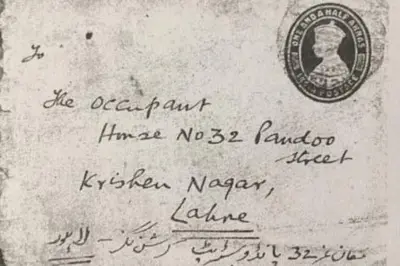 ONE AND A HALF ANNAS
INDIA POSTAGE
To
The occupant
House No 32 Pandoo
street
Krishen Nagar,
Lahre
مکان نمبر 32 پانڈو سٹریٹ کرشن نگر - لاہور